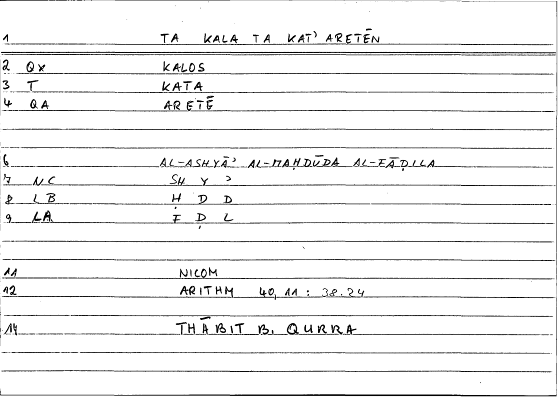 1 TA KALA TA KAT' ARETĒN
2 QX KALOS
3 T KATA
4 QA ARETĒ
6 AL-ASHYĀ' AL-MAḤDŪDA AL-FĀḌILA
7 NC SH Y '
8 LB Ḥ D D
9 LA F Ḍ L
11 NICOM
12 ARITHM 40, 11 : 38.24
14 THĀBIT B. QURRA